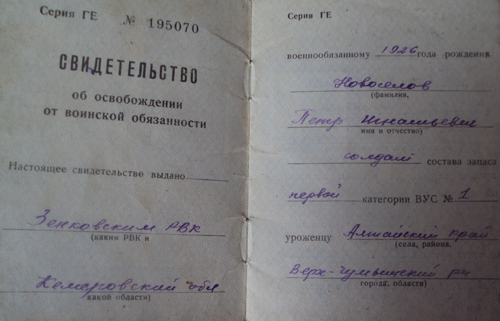 Серия ГЕ № 195070
СВИДЕТЕЛЬСТВО
об освобождении
от воинской обязанности
Настоящее свидетельство выдано
Зенковским РВК
(каким РВК и
Кемеровской обл
какой области)
Серия ГЕ
военнообязанному 1926 года рождения
Новоселов
(фамилия,
Петр Игнатьевич
имя и отчество)
солдат состава запаса
первой категории ВУС № 1
уроженцу Алтайский край
(села, района,
Верх-Чумышский р-н
города, области)